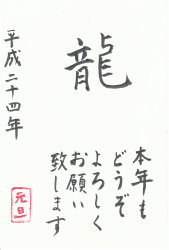 龍
本年も
どうぞ
よろしく
お願い
致します
平成二十四年
元旦